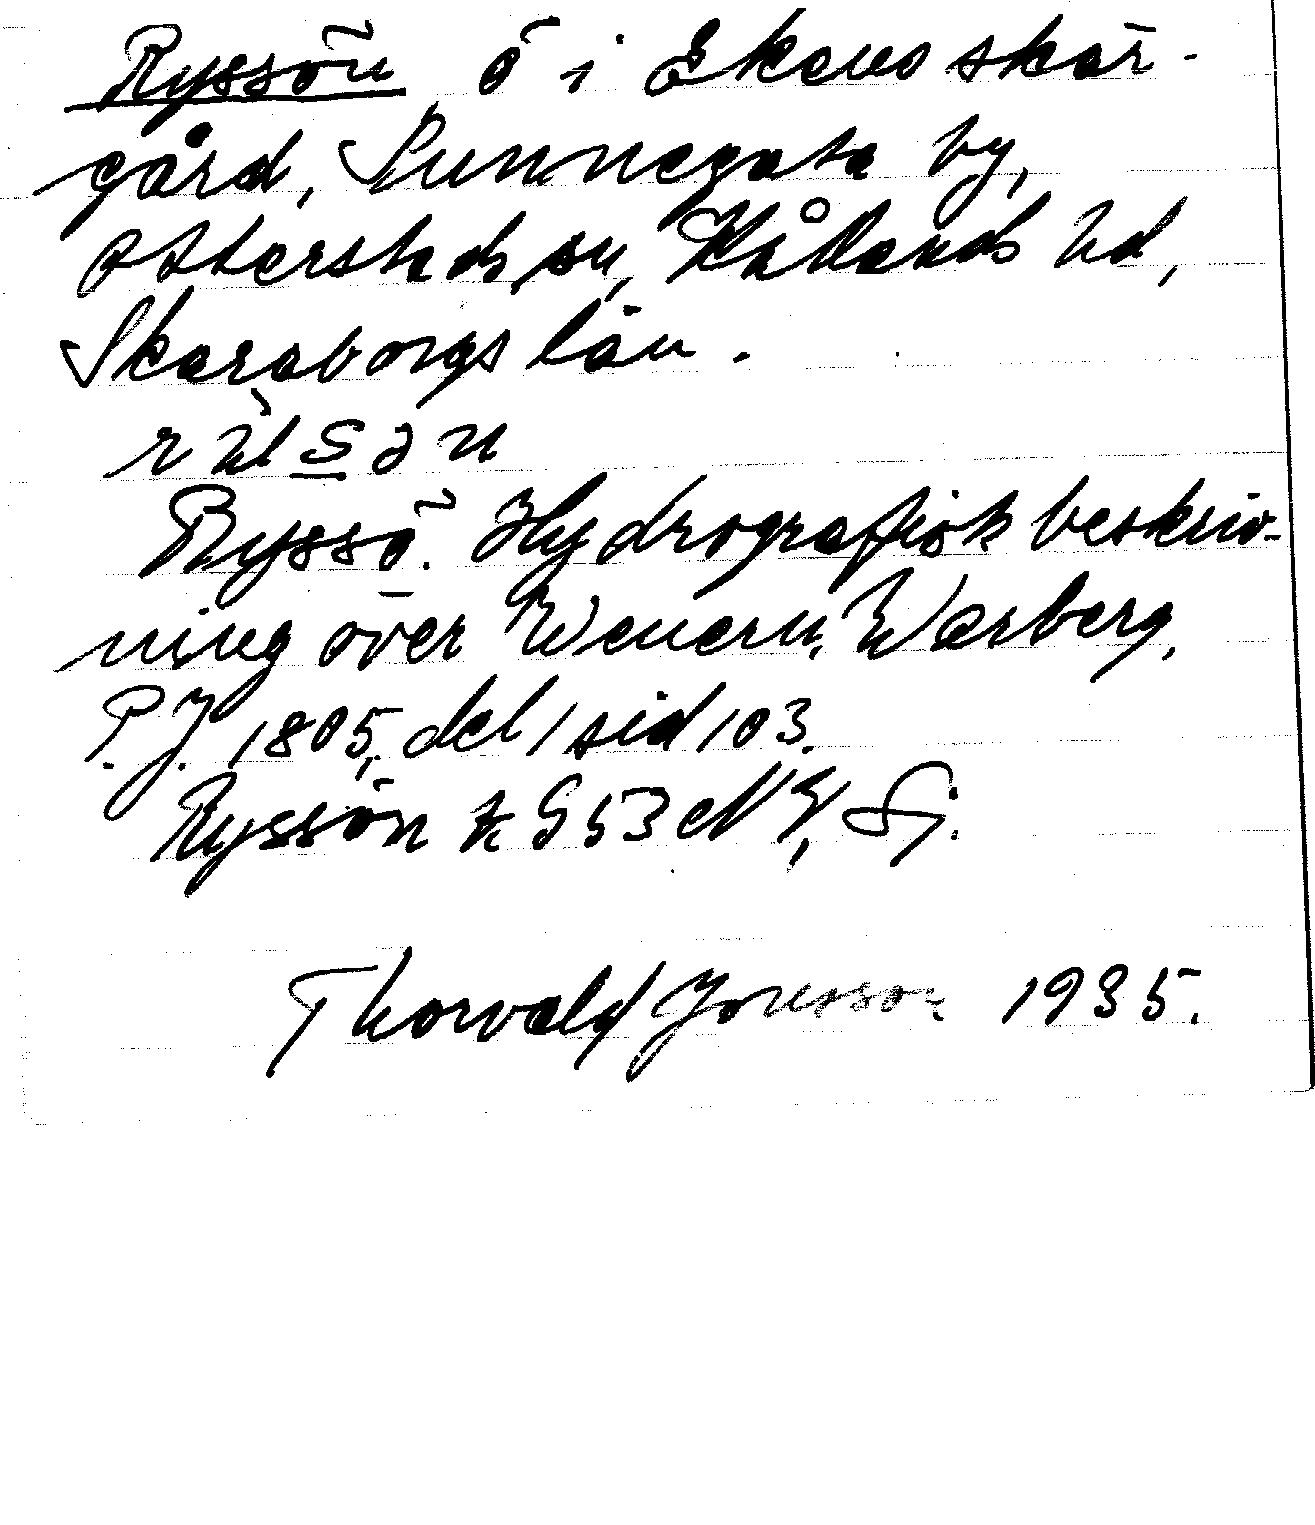 Ryssön ö i Ekens skär-
gård, Sunnegata by,
Otterstads sn, Kållands hd,
Skaraborgs län.
Ryssö. Hydrografisk beskriv-
ning över Wenern, Warberg,
P.J. 1805, del 1 sid 103.
Ryssön k G 53
Thorvald Jonsson 1935.